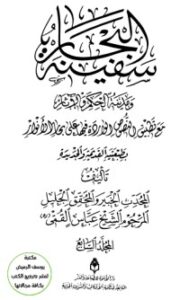 سفينة البحار
ومدينة الحكم والآثار
مع تطبيق النصوص الواردة فيها على بحار الأنوار
بطبعتيه القديمة والجديدة
تأليف
المحدث الخبير والمحقق الجليل
المرحوم الشيخ عباس القمي
المجلد السابع
مكتبة
يوسف الرميض
لنشر وتوزيع الكتب
بكافة مجالاتها